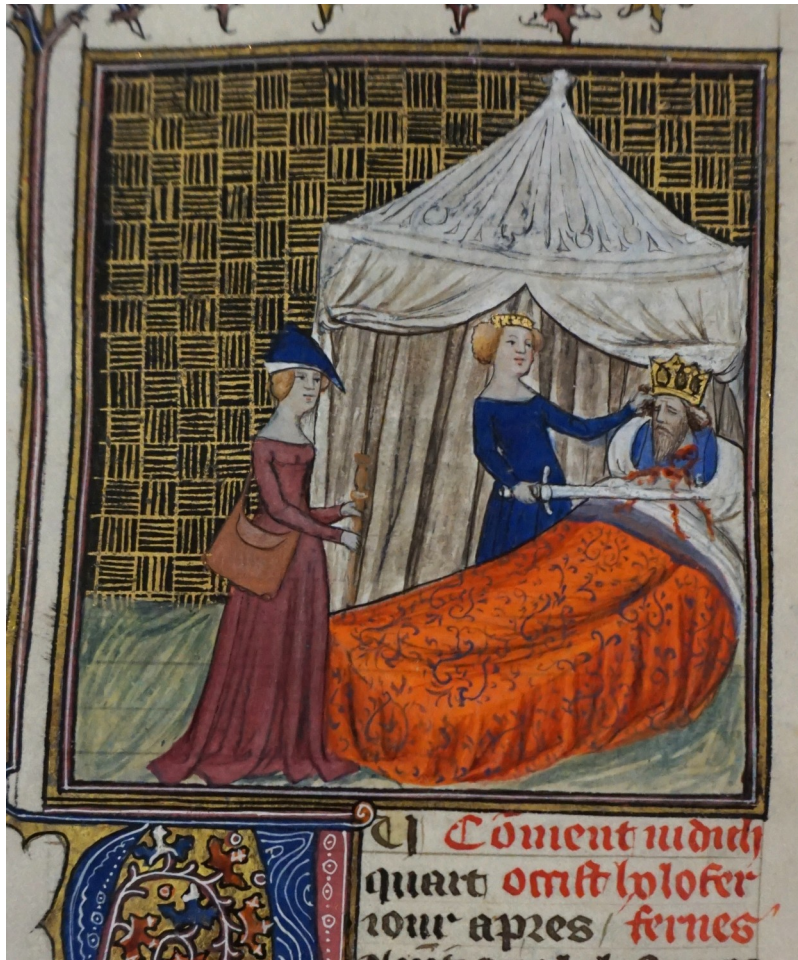 U Cōment iudich
quart occist hylofer
iour apres / fernes